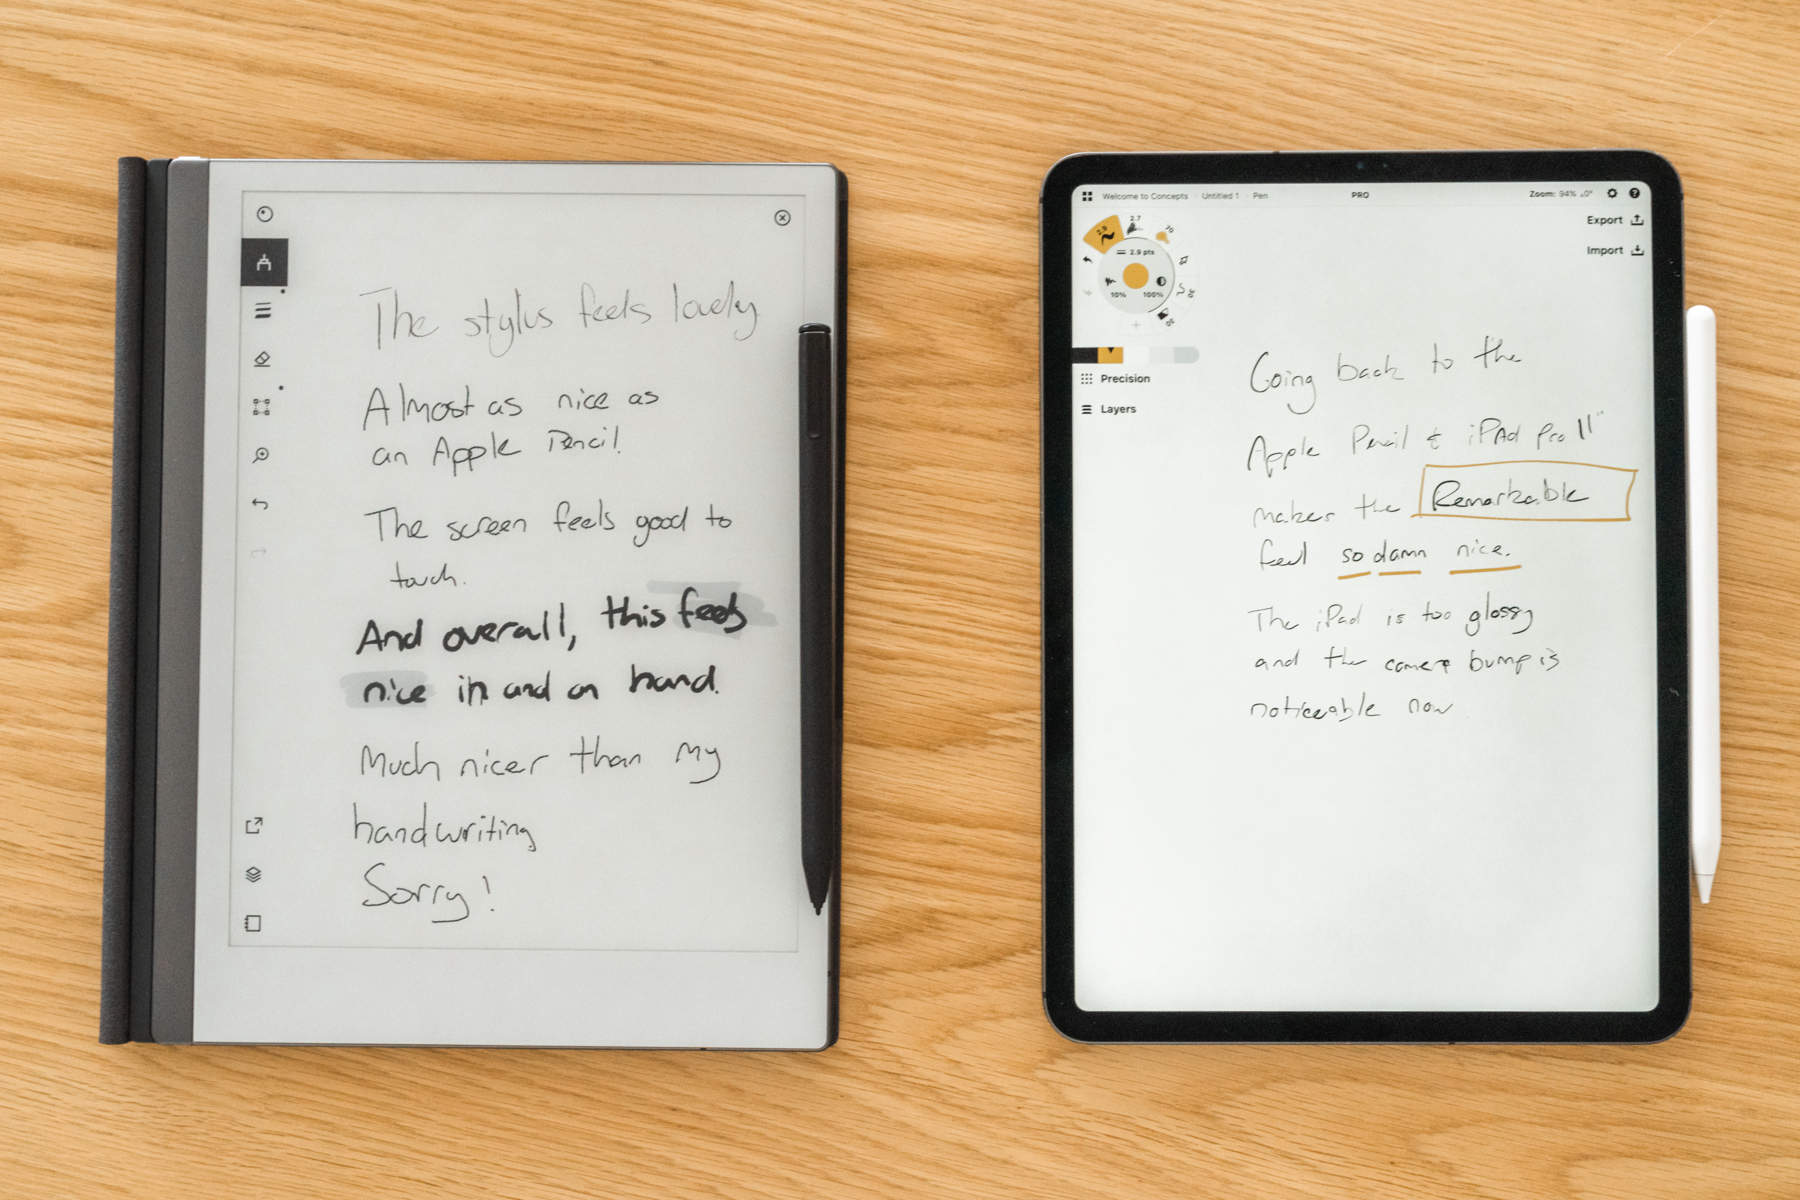 The stylus feels lovely
Almost as nice as
an Apple Pencil.
The screen feels good to
touch.
And overall, this feels
nice in and on hand.
Much nicer than my
handwriting
Sorry!
Welcome to Concepts Untitled 1 Pen PRO Zoom: 94% 0°
Export
Import
2.9
2.7
70
2.9 pts
10% 100%
Precision
Layers
Going back to the
Apple Pencil & iPAd Pro 11"
makes the Remarkable
feel so damn nice.
The iPad is too glossy
and the camera bump is
noticeable now